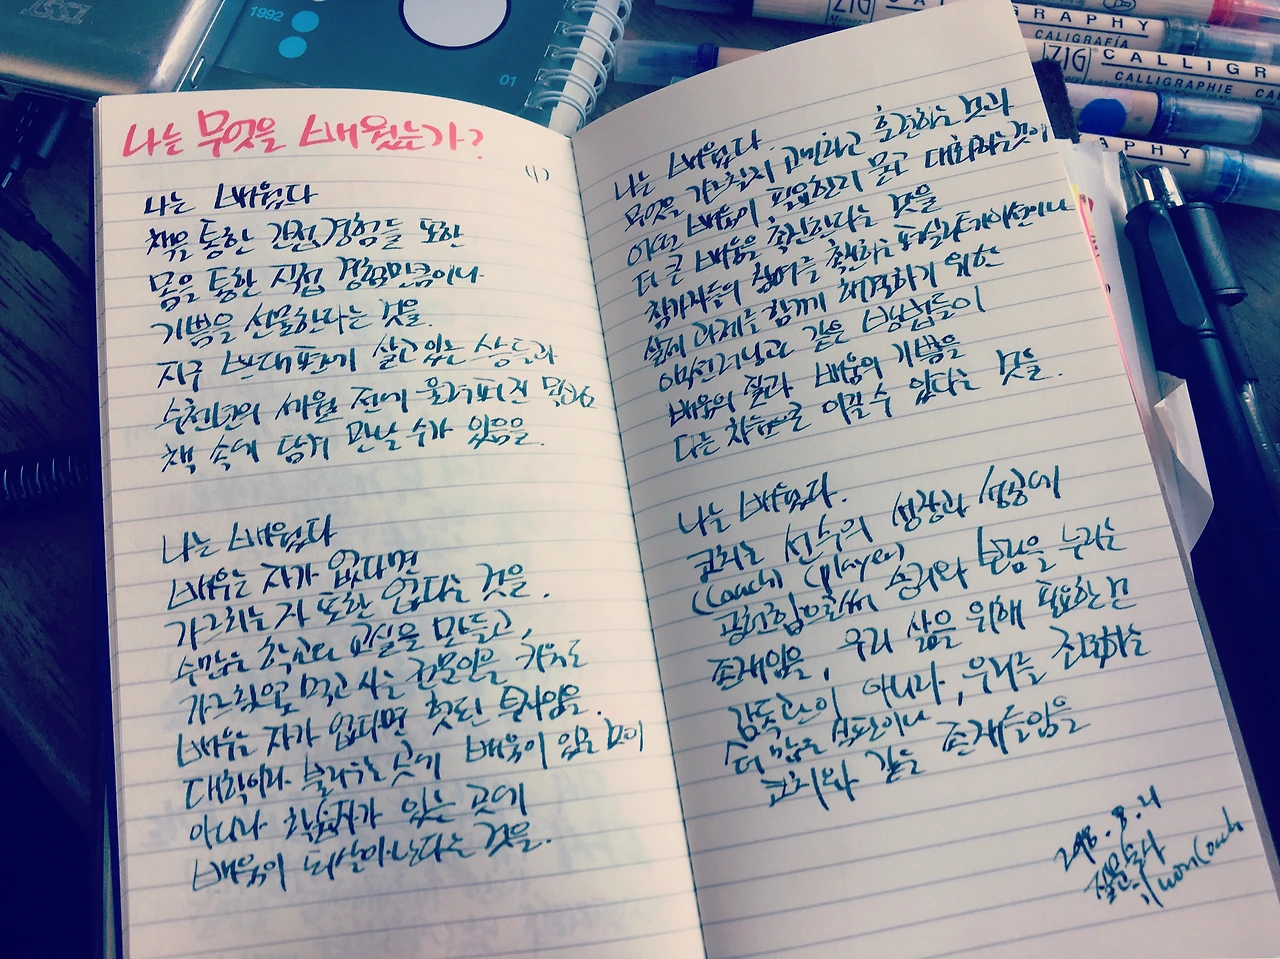 1992
01
ZIG
CALLIGRAPHY
CALIGRAFÍA
ZIG
CALLIGR
CALLIGRAPHIE CA
나는 무엇을 배웠는가?
나는 배웠다
책을 통한 간접경험들 또한
몸을 통한 직접 경험만큼이나
기쁨을 선물한다는 것을.
지구 반대편에 살고있는 상들과
수천년의 세월 전에 울려퍼진
책 속에 담겨 만날 수가 있음을.
나는 배웠다
배우는 자가 없다면
가르치는 자 또한 없다는 것을.
수많은 학교와 교실을 만들고,
가르침으로 먹고 사는 전문인을 키워도
배우는 자가 없다면 헛된 투자임을.
대학이라 불리우는 곳에 배움이 있는 것이
아니라 학습자가 있는 곳에
배움이 되살아난다는 것을.
나는 배웠다.
무엇을 가르칠지 고민하고 훈련하는 것과
어떤 배움이 필요한지 묻고 대화하는것이
더 큰 배움을 촉진한다는 것을
참가자들의 참여를 촉진하는 퍼실리테이션이나
실제 과제를 함께 해결하기 위한
액션러닝과 같은 방법들이
배움의 질과 배움의 기쁨을
다른 차원으로 이끌 수 있다는 것을.
나는 배웠다.
코치는 선수의 성장과 성공에
(Coach) (player)
공헌함으로써 승리와 보람을 누리는
존재임을, 우리 삶을 위해 필요한 건
감독관이 아니라, 우리를 조력하는
더 많은 심판이나
코치와 같은 존재들임을
질문술사